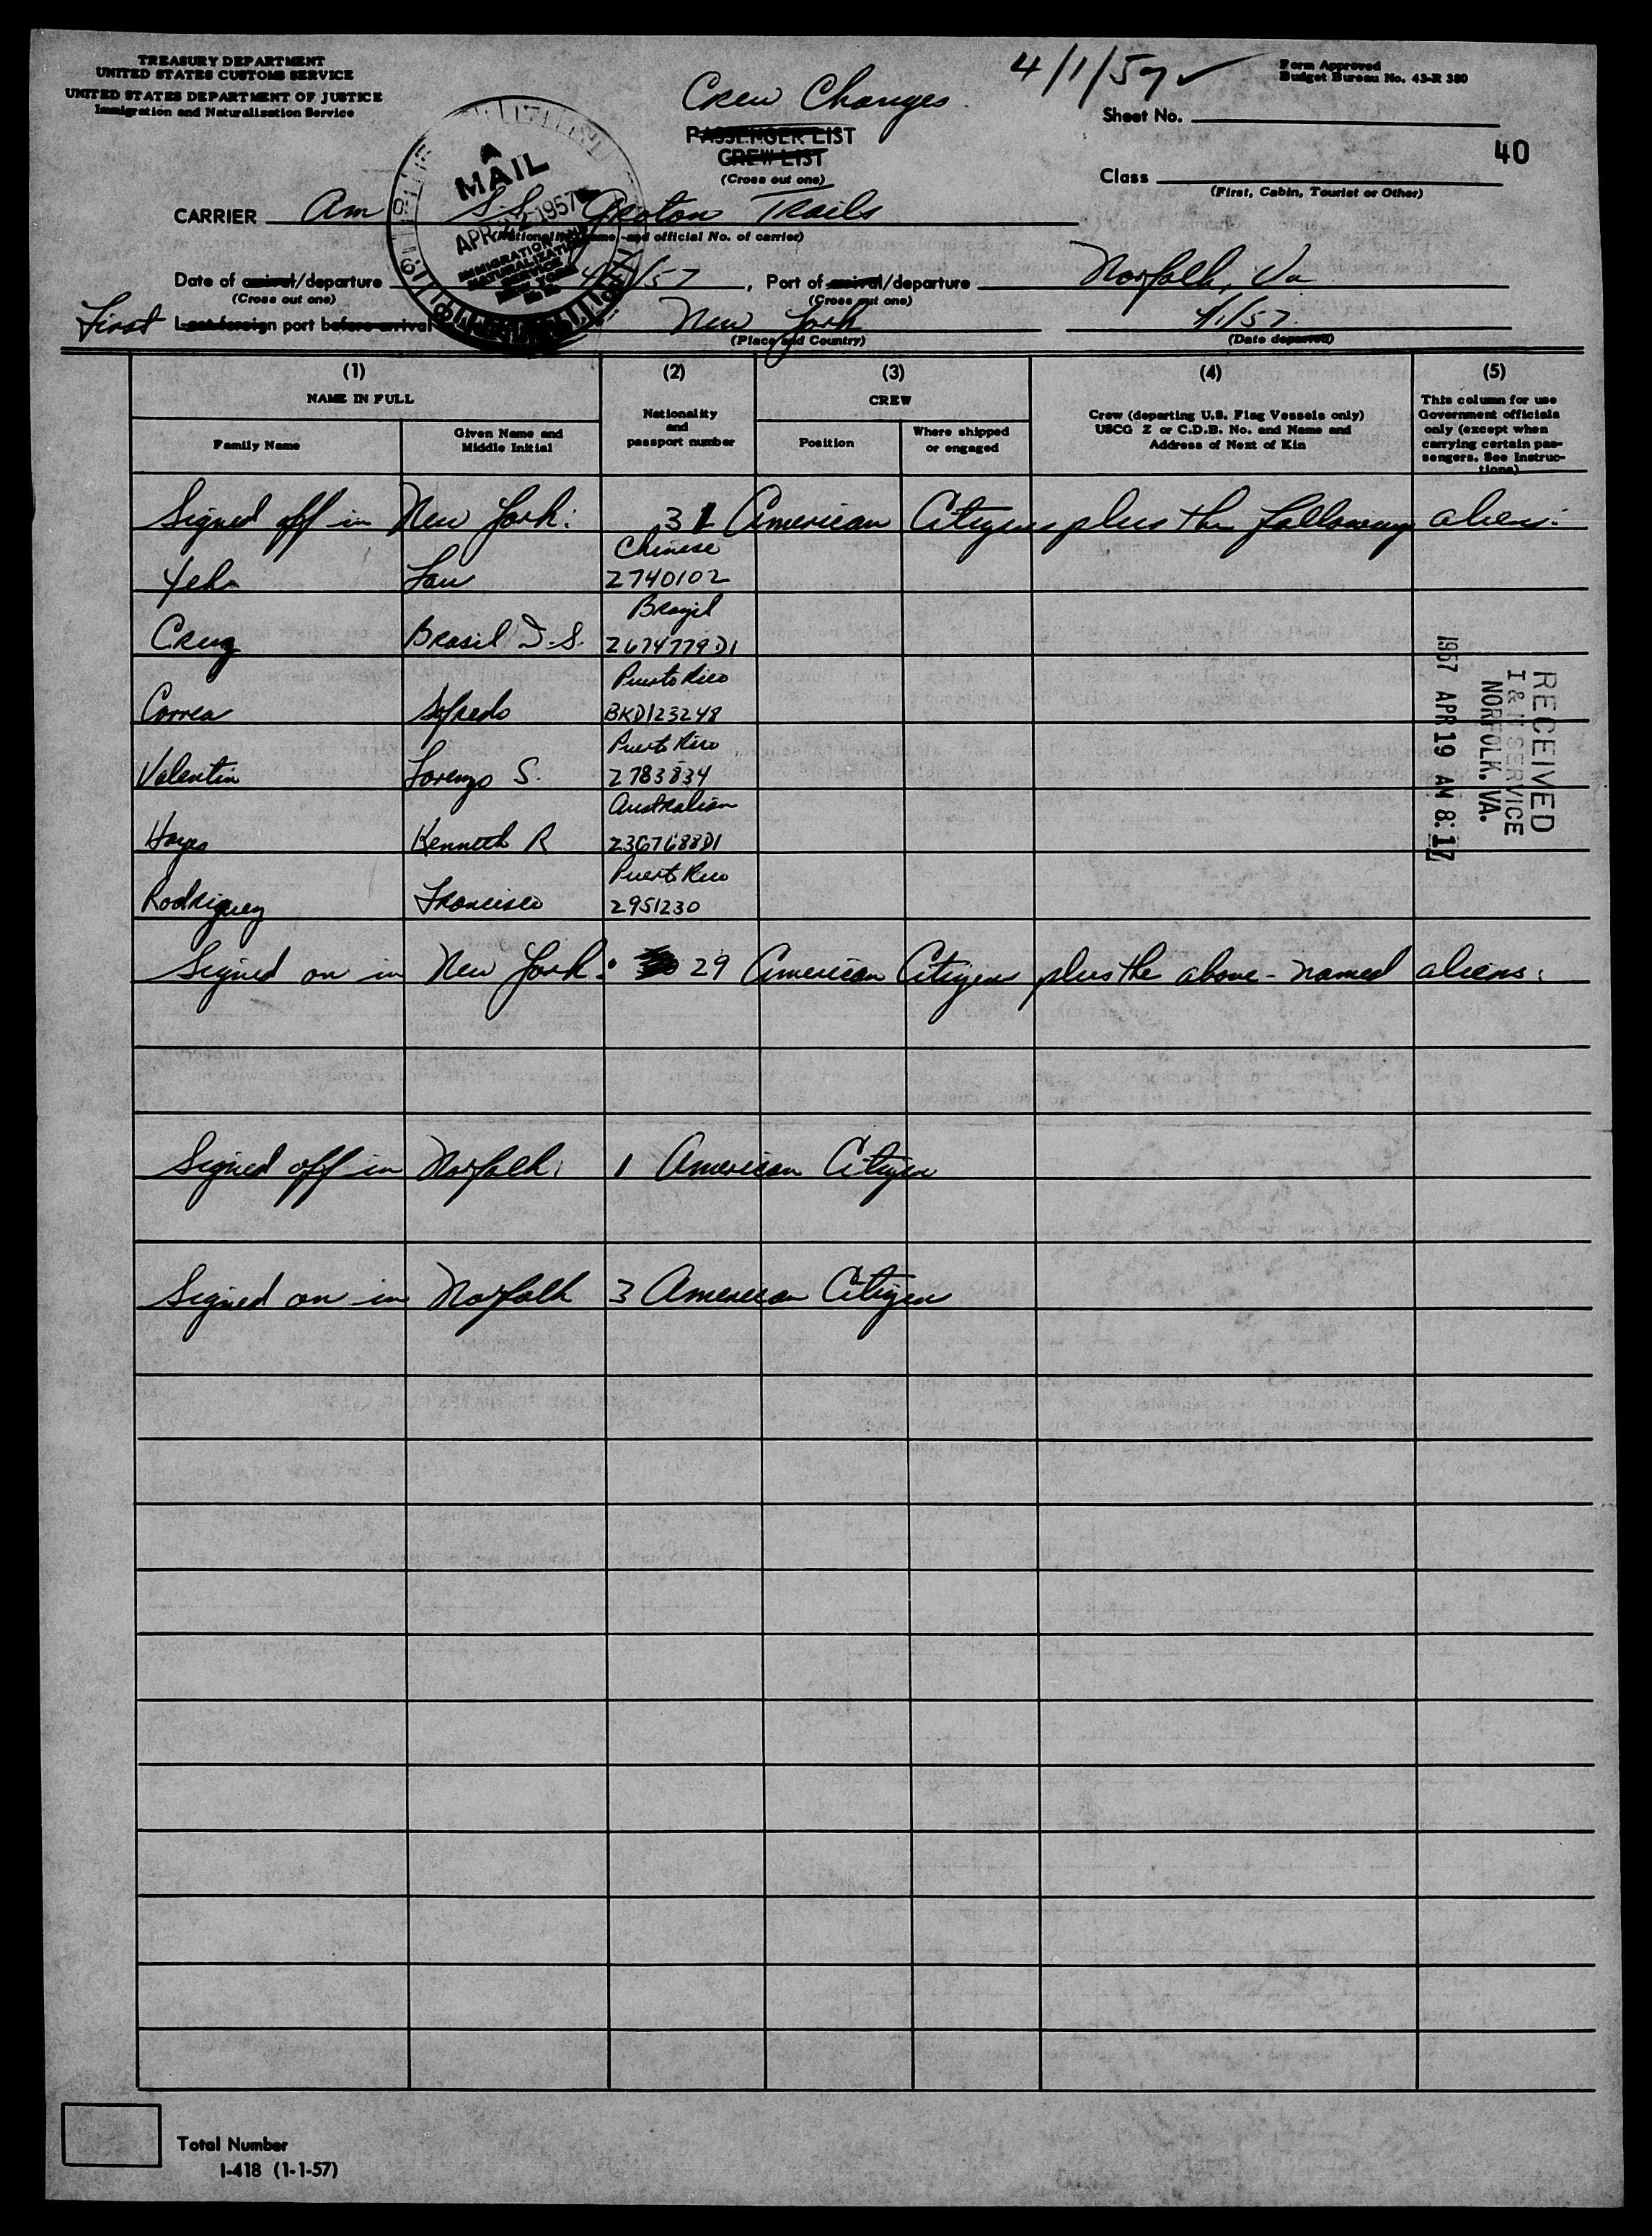 TREASURY DEPARTMENT
UNITED STATES CUSTOMS SERVICE
UNITED STATES DEPARTMENT OF JUSTICE
Immigration and Naturalization Service
Crew Changes
4/1/57 ✓
Form Approved
Budget Bureau No. 43-R 380
PASSENGER LIST
CREW LIST
(Cross out one)
Sheet No.
40
Class
(First, Cabin, Tourist or Other)
A
MAIL
APR 22 1957
IMMIGRATION AND
NATURALIZATION
SERVICE
NEW YORK
CARRIER Am SS Groton Trails
(National name and official No. of carrier)
Date of arrival/departure 4/1/57, Port of arrival/departure Norfolk, Va
(Cross out one) (Cross out one)
First Last foreign port before arrival New York 4/1/57.
(Place and Country) (Date departed)
(1) (2) (3) (4) (5)
NAME IN FULL
Family Name
Given Name and
Middle Initial
Nationality
and
passport number
CREW
Position
Where shipped
or engaged
Crew (departing U.S. Flag Vessels only)
USCG Z or C.D.B. No. and Name and
Address of Next of Kin
This column for use
Government officials
only (except when
carrying certain pas-
sengers. See Instruc-
tions)
Signed off in New York: 31 American Citizens plus the following aliens:
Chinese
Yeh Lau 2740102
Brazil
Cruz Brasil D-S. 2674779D1
Puerto Rico
Correa Alfredo BKD123248
Puerto Rico
Valentin Lorenzo S. 2783834
Australian
Hayes Kenneth R 2367688D1
Puerto Rico
Rodriguez Francisco 2951230
Signed on in New York: 29 American Citizens plus the above-named aliens.
Signed off in Norfolk: 1 American Citizen
Signed on in Norfolk 3 American Citizen
RECEIVED
I & N SERVICE
NORFOLK, VA.
1957 APR 19 AM 8:17
Total Number
I-418 (1-1-57)